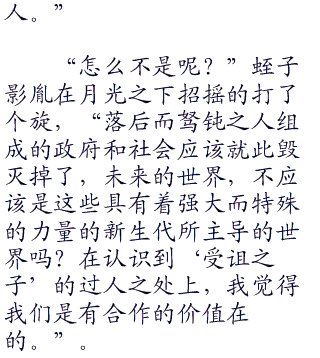 人。”
“怎么不是呢？”蛭子
影胤在月光之下招摇的打了
个旋，“落后而驽钝之人组
成的政府和社会应该就此毁
灭掉了，未来的世界，不应
该是这些具有着强大而特殊
的力量的新生代所主导的世
界吗？在认识到‘受诅之
子’的过人之处上，我觉得
我们是有合作的价值在
的。”。